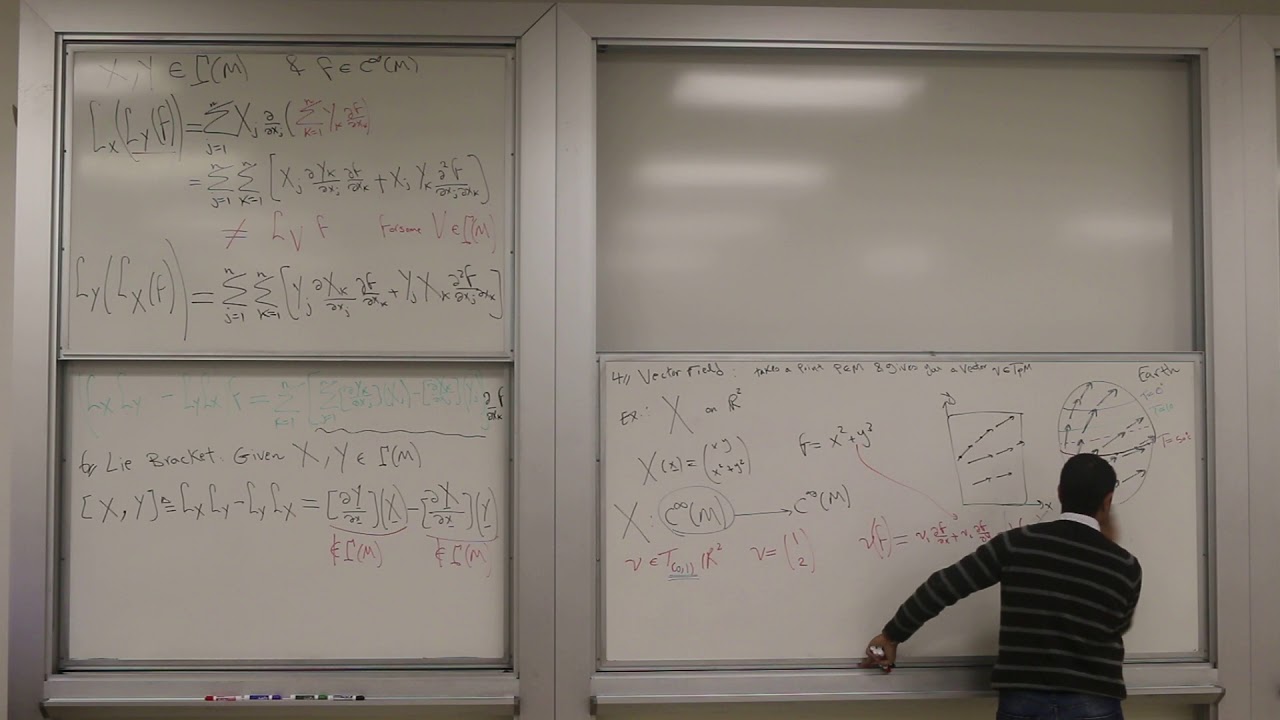 X, Y ∈ Γ(M) & f ∈ C^∞(M)
L_X(L_Y(f)) = Σ_{j=1}^n X_j ∂/∂x_j (Σ_{k=1}^n Y_k ∂f/∂x_k)
= Σ_{j=1}^n Σ_{k=1}^n [X_j ∂Y_k/∂x_j ∂f/∂x_k + X_j Y_k ∂²f/∂x_j∂x_k]
≠ L_V f for some V ∈ Γ(M)
L_Y(L_X(f)) = Σ_{j=1}^n Σ_{k=1}^n [Y_j ∂X_k/∂x_j ∂f/∂x_k + Y_j X_k ∂²f/∂x_j∂x_k]
Lie Bracket: Given X, Y ∈ Γ(M)
[X, Y] ≜ L_X L_Y - L_Y L_X = [∂Y/∂x](X) - [∂X/∂x](Y)
∉ Γ(M) ∉ Γ(M)
4// Vector Field: takes a Point P∈M & gives you a Vector v∈T_PM
Ex: X on R²
X(x) = (xy
x²+y²)
f = x²+y³
X: C^∞(M) → C^∞(M)
v ∈ T_(0,1) R² v = (1
2)
v(f) = v₁ ∂f/∂x + v₂ ∂f/∂y
y
x
Earth
T=0°
T=10
T=50°